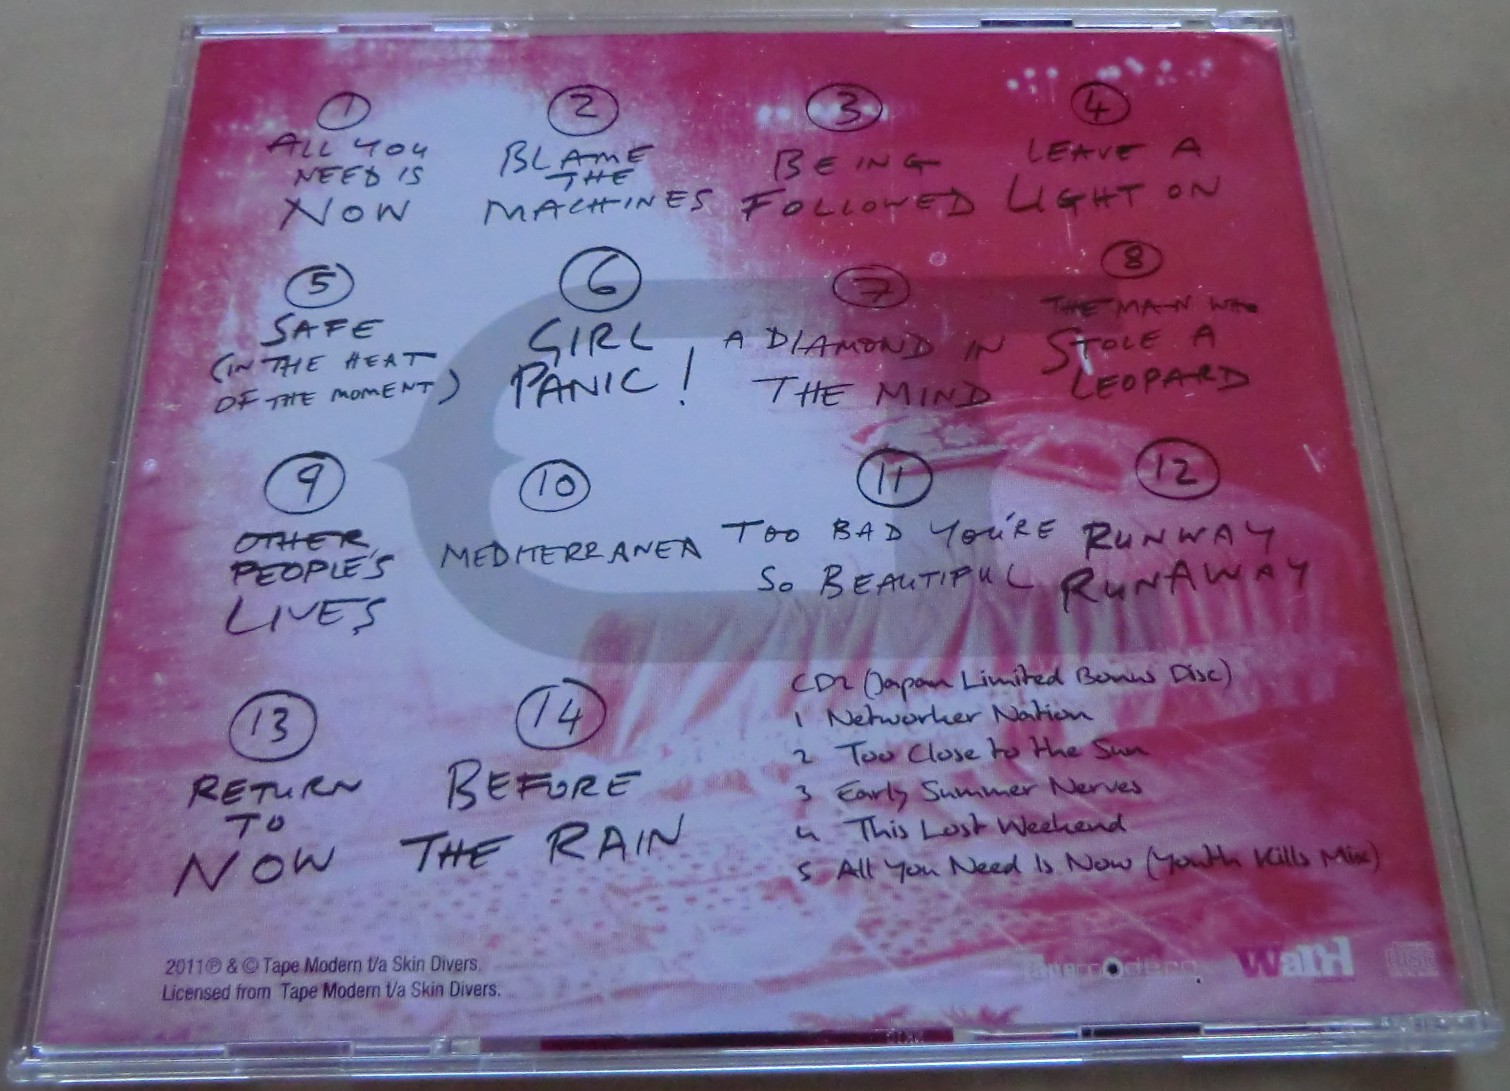 1
ALL YOU
NEED IS
NOW
2
BLAME
THE
MACHINES
3
BEING
FOLLOWED
4
LEAVE A
LIGHT ON
5
SAFE
(IN THE HEAT
OF THE MOMENT)
6
GIRL
PANIC!
7
A DIAMOND IN
THE MIND
8
THE MAN WHO
STOLE A
LEOPARD
9
OTHER
PEOPLE'S
LIVES
10
MEDITERRANEA
11
TOO BAD YOU'RE
SO BEAUTIFUL
12
RUNWAY
RUNAWAY
13
RETURN
TO
NOW
14
BEFORE
THE RAIN
CD2 (Japan Limited Bonus Disc)
1 Networker Nation
2 Too Close to the Sun
3 Early Summer Nerves
4 This Lost Weekend
5 All You Need Is Now (Youth Kills Mix)
2011℗ & © Tape Modern t/a Skin Divers.
Licensed from Tape Modern t/a Skin Divers.
tapemodern.
WaRd